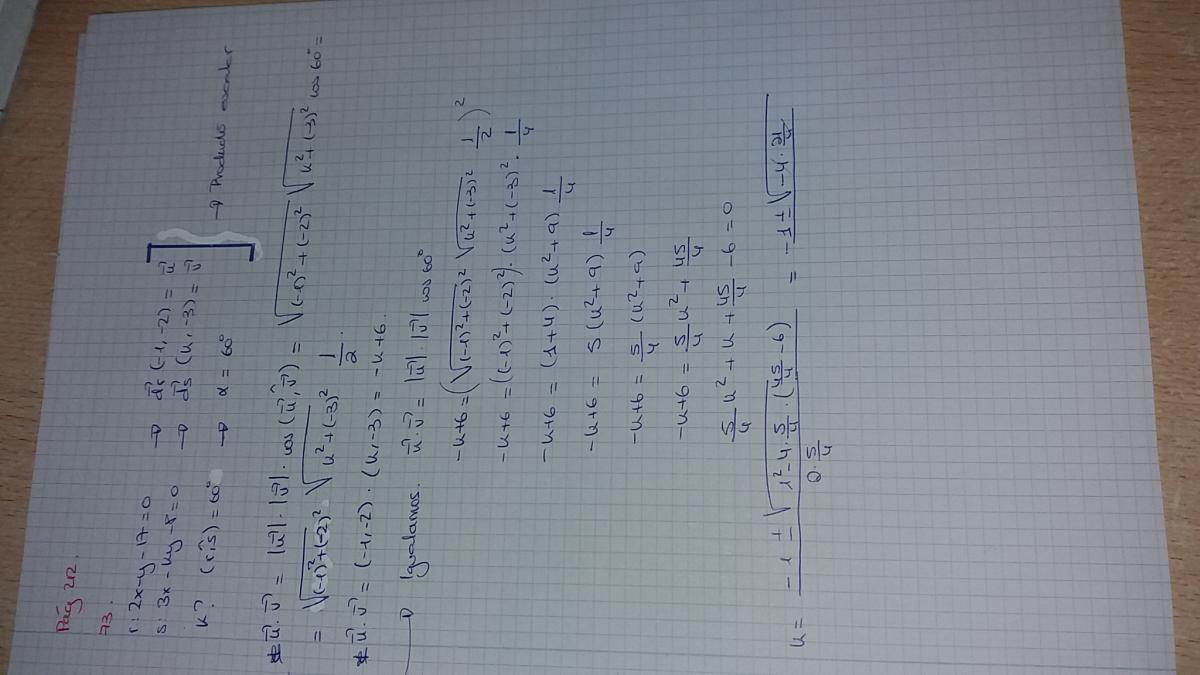 Pág 212.
73.
r: 2x-y-17=0 → d⃗r (-1,-2) = u⃗
s: 3x-ky-8=0 → d⃗s (k,-3) = v⃗
k? (r,s) = 60° → α = 60° → Producto escalar
* u⃗·v⃗ = |u⃗|·|v⃗|·cos(u⃗,v⃗) = √((-1)²+(-2)²) √(k²+(-3)²) cos 60° =
= √((-1)²+(-2)²) · √(k²+(-3)²) 1/2.
* u⃗·v⃗ = (-1,-2)·(k,-3) = -k+6.
→ Igualamos. u⃗·v⃗ = |u⃗|·|v⃗| cos 60°
-k+6 = (√((-1)²+(-2)²) √(k²+(-3)²) 1/2)²
-k+6 = ((-1)²+(-2)²)·(k²+(-3)²·1/4
-k+6 = (1+4)·(k²+9) 1/4
-k+6 = 5(k²+9) 1/4
-k+6 = 5/4 (k²+9)
-k+6 = 5/4 k² + 45/4
5/4 k² + k + 45/4 - 6 = 0
k = (-1 ± √(1²-4·5/4·(45/4-6))) / (2·5/4) = -1 ± √(-4·21/4)